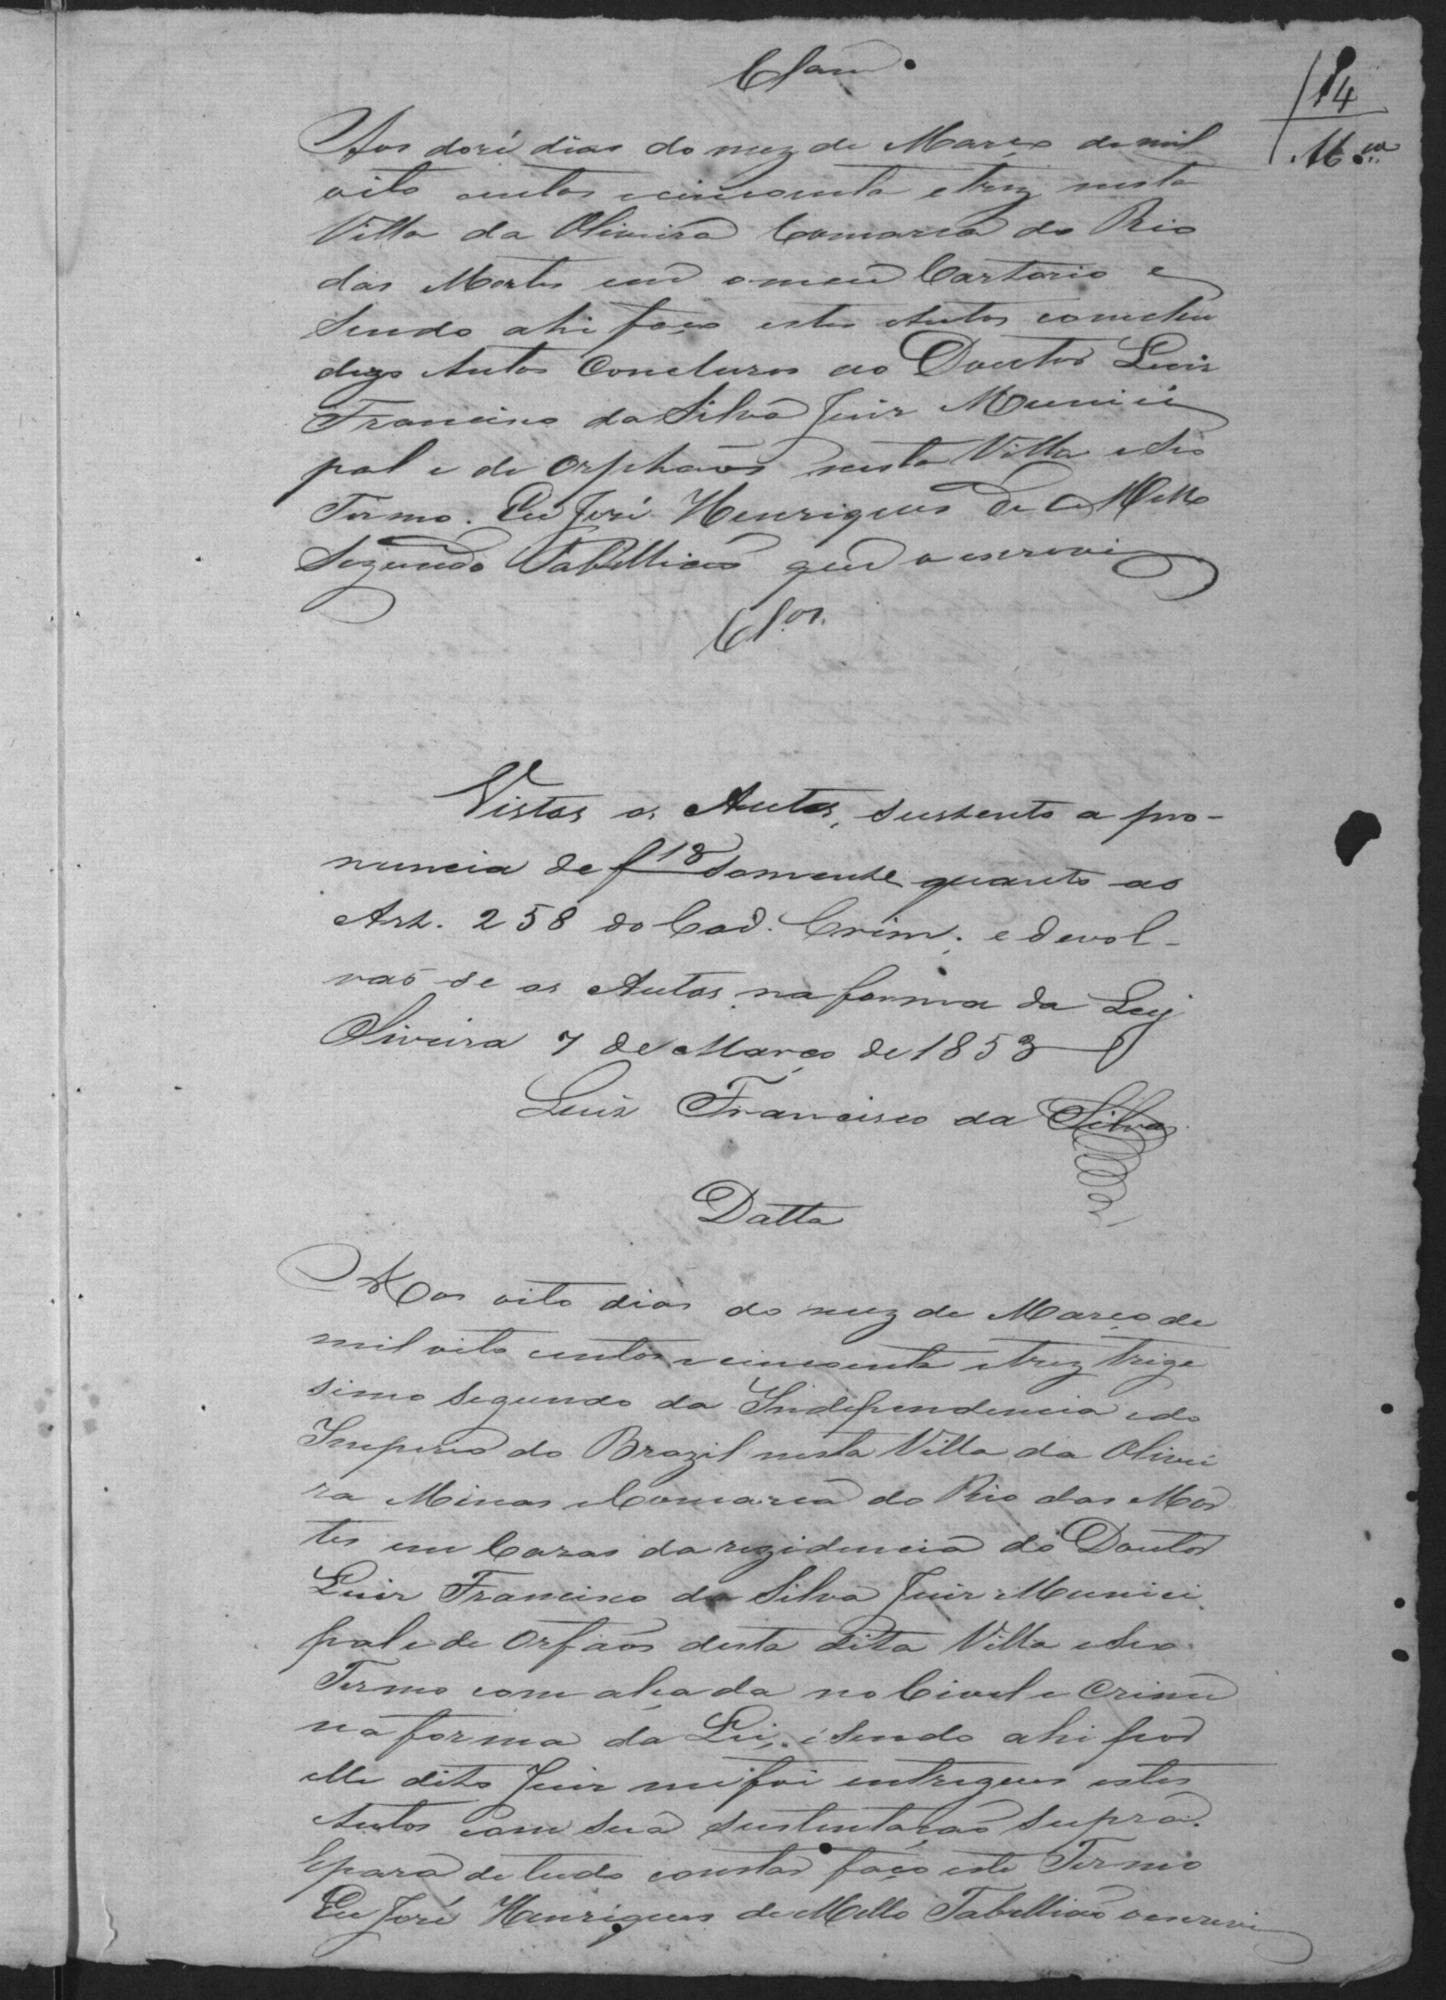 Clam
14
M.
Aos dois dias do mez de Março de mil
oito centos e cincoenta e trez nesta
Villa da Oliveira Comarca do Rio
das Mortes em o meu Cartorio e
sendo ahi faço estes Autos
digo Autos Concluzos ao Doutor Luis
Francisco da Silva Juis Munici
pal e de Orphãos nesta Villa e seo
Termo. Eu José Henriques de Mello
Segundo Tabellião que o escrevi
Cl.os
Vistos os Autos, sustento a pro-
nuncia de f 18 somente quanto ao
Art. 258 do Cod. Crim. e devol-
vaõ-se os Autos na forma da Ley
Oliveira 7 de Março de 1853
Luis Francisco da Silva
Datta
Aos oito dias do mez de Março de
mil oito centos e cincoenta e trez trige
simo segundo da Independencia e do
Imperio do Brazil nesta Villa da Olivei
ra Minas e Comarca do Rio das Mor
tes em Cazas da rezidencia do Doutor
Luis Francisco da Silva Juis Munici
pal e de Orfãos desta dita Villa e seo
Termo com alçada no Civel e Crime
na forma da Lei, e sendo ahi por
elle dito Juis me foi entregues estes
Autos com sua sustentação supra.
E para de tudo constar faço este Termo
Eu José Henriques de Mello Tabellião o escrevi